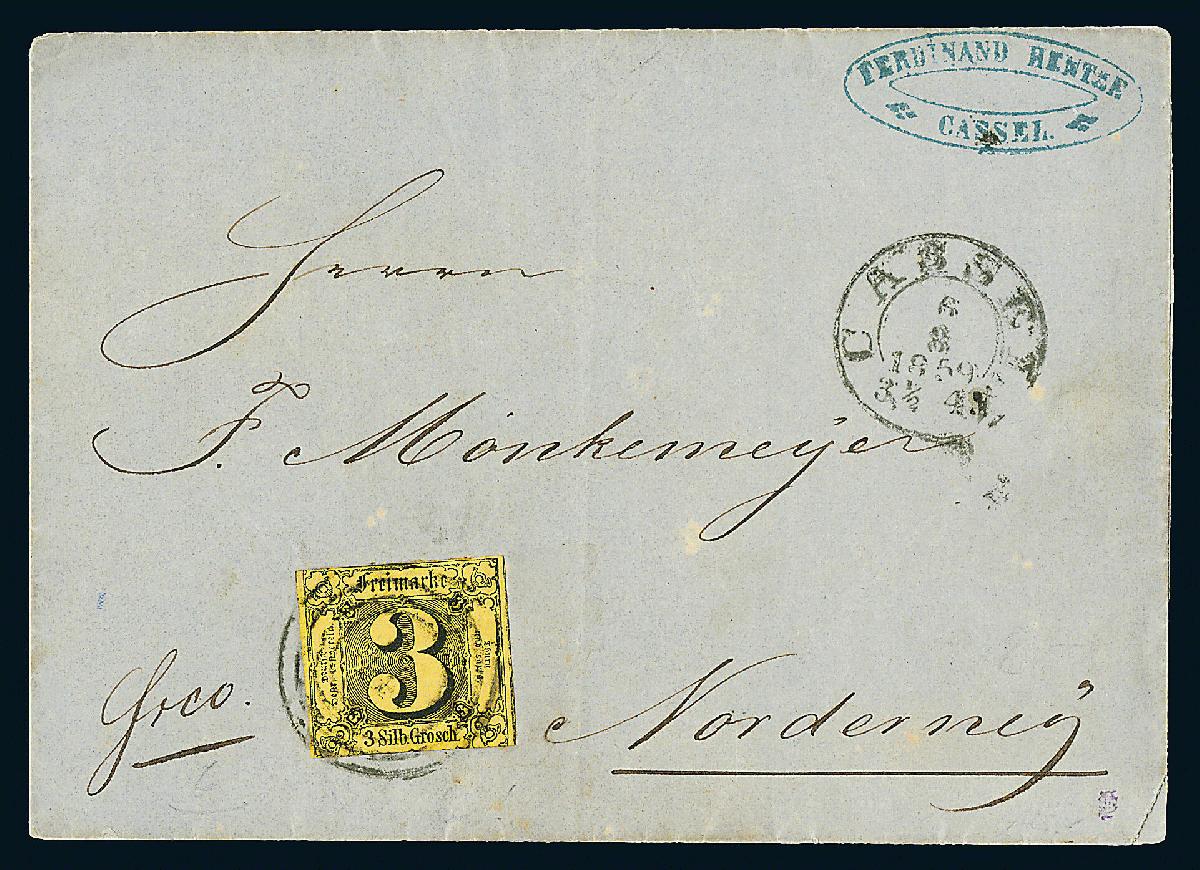 FERDINAND HENTZE
CASSEL.
CASSEL
6
8
1859
3½ 4
Herrn
F. Mönkemeyer
Freimarke
3
3 Silb. Grosch
frco.
Norderneÿ